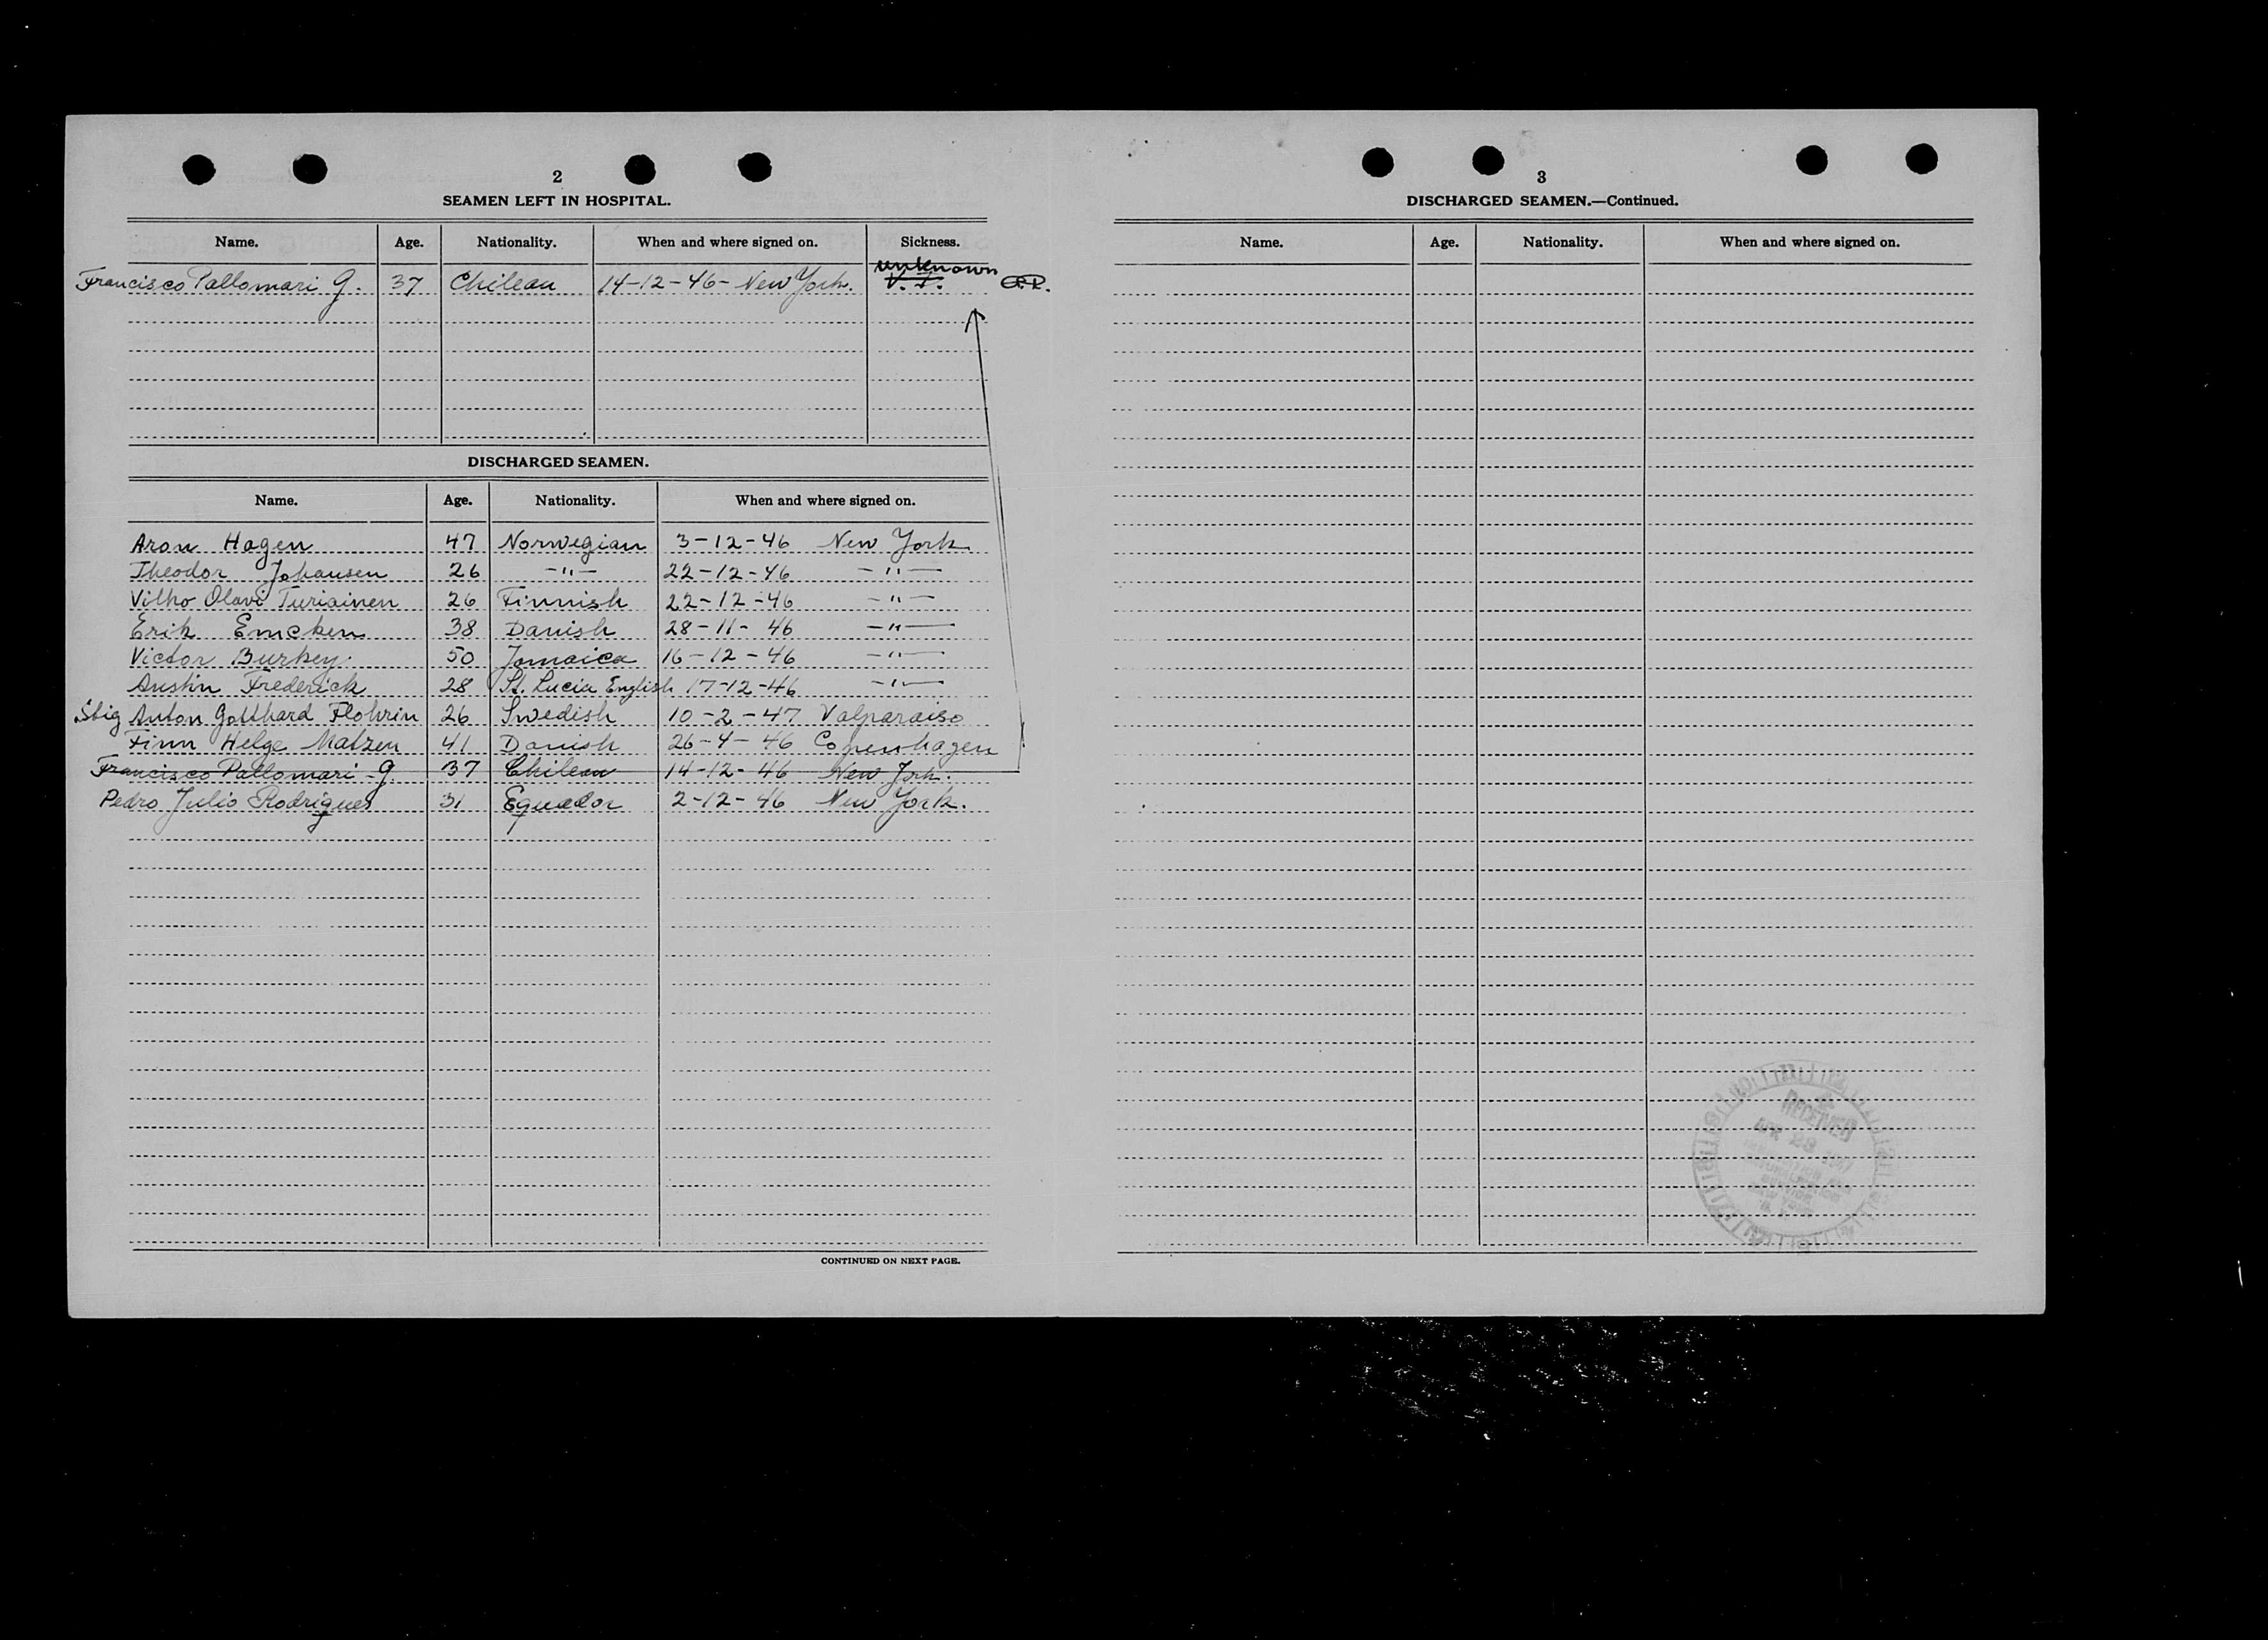 2
SEAMEN LEFT IN HOSPITAL.
Name. Age. Nationality. When and where signed on. Sickness.
unknown
Francisco Pallomari G. 37 Chilean 14-12-46- New York. V. I.
DISCHARGED SEAMEN.
Name. Age. Nationality. When and where signed on.
Aron Hagen 47 Norwegian 3-12-46 New York
Theodor Johansen 26 -"- 22-12-46 -"-
Vilho Olavi Turiainen 26 Finnish 22-12-46 -"-
Erik Emcken 38 Danish 28-11-46 -"-
Victor Burkey. 50 Jamaica 16-12-46 -"-
Austin Frederick 28 St. Lucia English 17-12-46 -"-
Stig Anton Gotthard Flohrin 26 Swedish 10-2-47 Valparaiso
Finn Helge Matzen 41 Danish 26-4-46 Copenhagen
Francisco Pallomari G. 37 Chilean 14-12-46 New York.
Pedro Julio Rodrigues 31 Equador 2-12-46 New York.
CONTINUED ON NEXT PAGE.
3
DISCHARGED SEAMEN.—Continued.
Name. Age. Nationality. When and where signed on.
RECEIVED
APR 28 1947